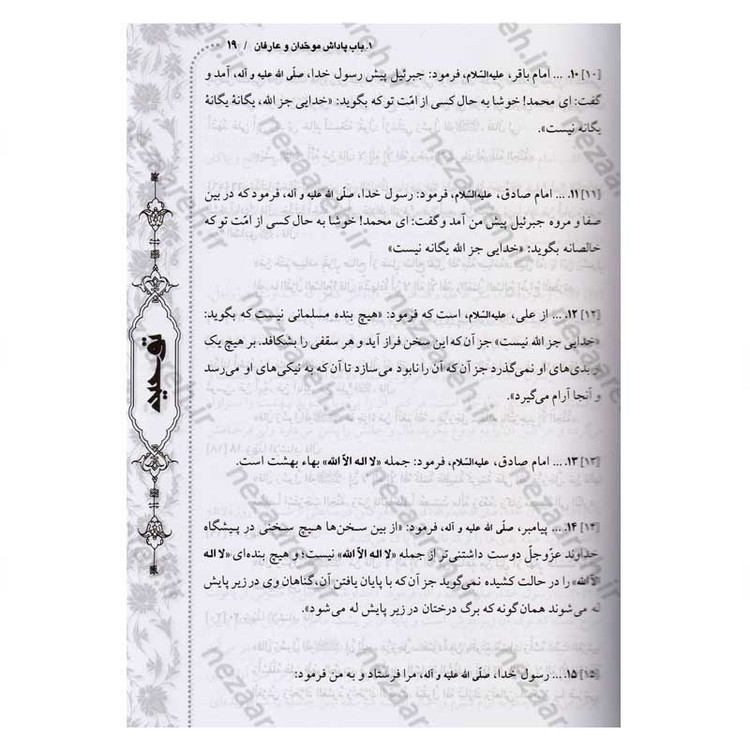 ۱. باب پاداش موحّدان و عارفان / ۱۹
[۱۰] ۱۰. ... امام باقر، علیه‌السّلام، فرمود: جبرئیل پیش رسول خدا، صلّی الله علیه و آله، آمد و
گفت: ای محمد! خوشا به حال کسی از امّت تو که بگوید: «خدایی جز الله، یگانهٔ یگانهٔ
یگانه نیست».
[۱۱] ۱۱. ... امام صادق، علیه‌السّلام، فرمود: رسول خدا، صلّی الله علیه و آله، فرمود که در بین
صفا و مروه جبرئیل پیش من آمد و گفت: ای محمد! خوشا به حال کسی از امّت تو که
خالصانه بگوید: «خدایی جز الله یگانه نیست»
[۱۲] ۱۲. ... از علی، علیه‌السلام، است که فرمود: «هیچ بنده مسلمانی نیست که بگوید:
«خدایی جز الله نیست» جز آن که این سخن فراز آید و هر سقفی را بشکافد. بر هیچ یک
از بدی‌های او نمی‌گذرد جز آن که آن را نابود می‌سازد تا آن که به نیکی‌های او می‌رسد
و آنجا آرام می‌گیرد».
[۱۳] ۱۳. ... امام صادق، علیه‌السّلام، فرمود: جمله «لا اله الاّ الله» بهاء بهشت است.
[۱۴] ۱۴. ... پیامبر، صلّی الله علیه و آله، فرمود: «از بین سخن‌ها هیچ سخنی در پیشگاه
خداوند عزّوجلّ دوست داشتنی‌تر از جمله «لا اله الاّ الله» نیست؛ و هیچ بنده‌ای «لا اله
الاّ الله» را در حالت کشیده نمی‌گوید جز آن که با پایان یافتن آن، گناهان وی در زیر پایش
له می‌شوند همان گونه که برگ درختان در زیر پایش له می‌شود».
[۱۵] ۱۵. ... رسول خدا، صلّی الله علیه و آله، مرا فرستاد و به من فرمود:
توحید
nezaareh.ir